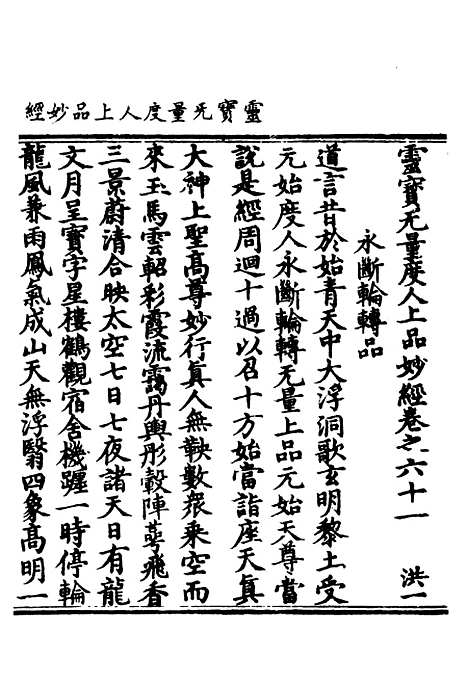 靈寶无量度人上品妙經
靈寶无量度人上品妙經卷之六十一 洪一
永斷輪轉品
道言昔於始青天中大浮洞歌玄明黎土受
元始度人永斷輪轉无量上品元始天尊當
說是經周迴十過以召十方始當詣座天真
大神上聖高尊妙行真人無鞅數衆乘空而
來玉馬雲軺彩霞流靄丹輿彤轂陣萼飛香
三景蔚清合映太空七日七夜諸天日有龍
文月呈寶字星樓鶴觀宿舍機躔一時停輪
龍風兼雨鳳氣成山天無浮翳四象高明一